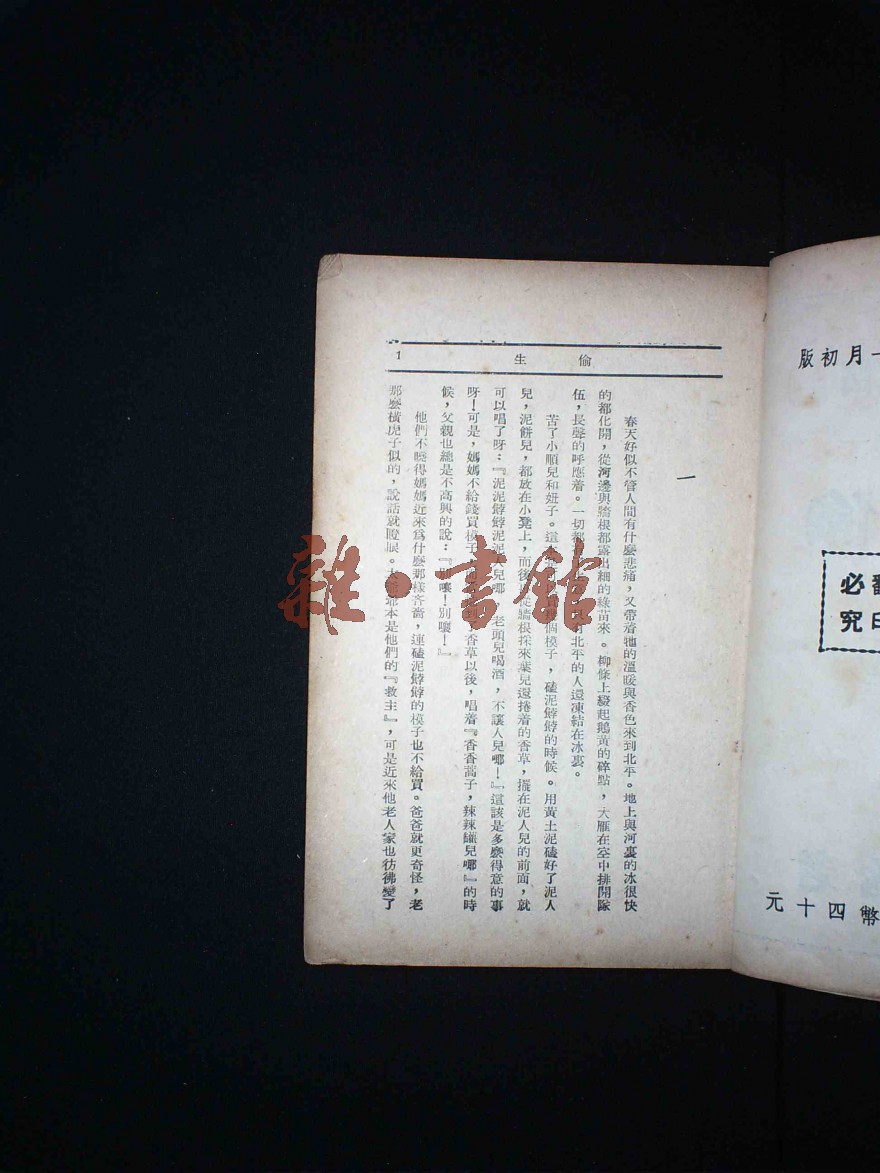 月初版
必
究
幣四十元
偷生
1
一
春天好似不管人間有什麼悲痛，又帶着牠的溫暖與香色來到北平。地上與河裏的冰很快
的都化開，從河邊與牆根都露出細的綠苗來。柳條上綴起鵝黃的碎點，大雁在空中排開隊
伍，長聲的呼應着。一切都 北平的人還凍結在冰裏。
苦了小順兒和妞子。這本是 個模子，磕泥餑餑的時候。用黃土泥磕好了泥人
兒，泥餅兒，都放在小凳上，而後 從牆根採來葉兒還捲着的香草，擺在泥人兒的前面，就
可以唱了呀：『泥泥餑餑泥泥人兒哪 老頭兒喝酒，不讓人兒哪！』這該是多麼得意的事
呀！可是，媽媽不給錢買模子 香草以後，唱着『香香蒿子，辣辣罐兒哪』的時
候，父親也總是不高興的說：『別嚷！別嚷！』
他們不曉得媽媽近來爲什麼那樣吝嗇，連磕泥餑餑的模子也不給買。爸爸就更奇怪，老
那麼橫虎子似的，說話就瞪眼。太爺爺本是他們的『救主』，可是近來他老人家也彷彿變了
雜·書館